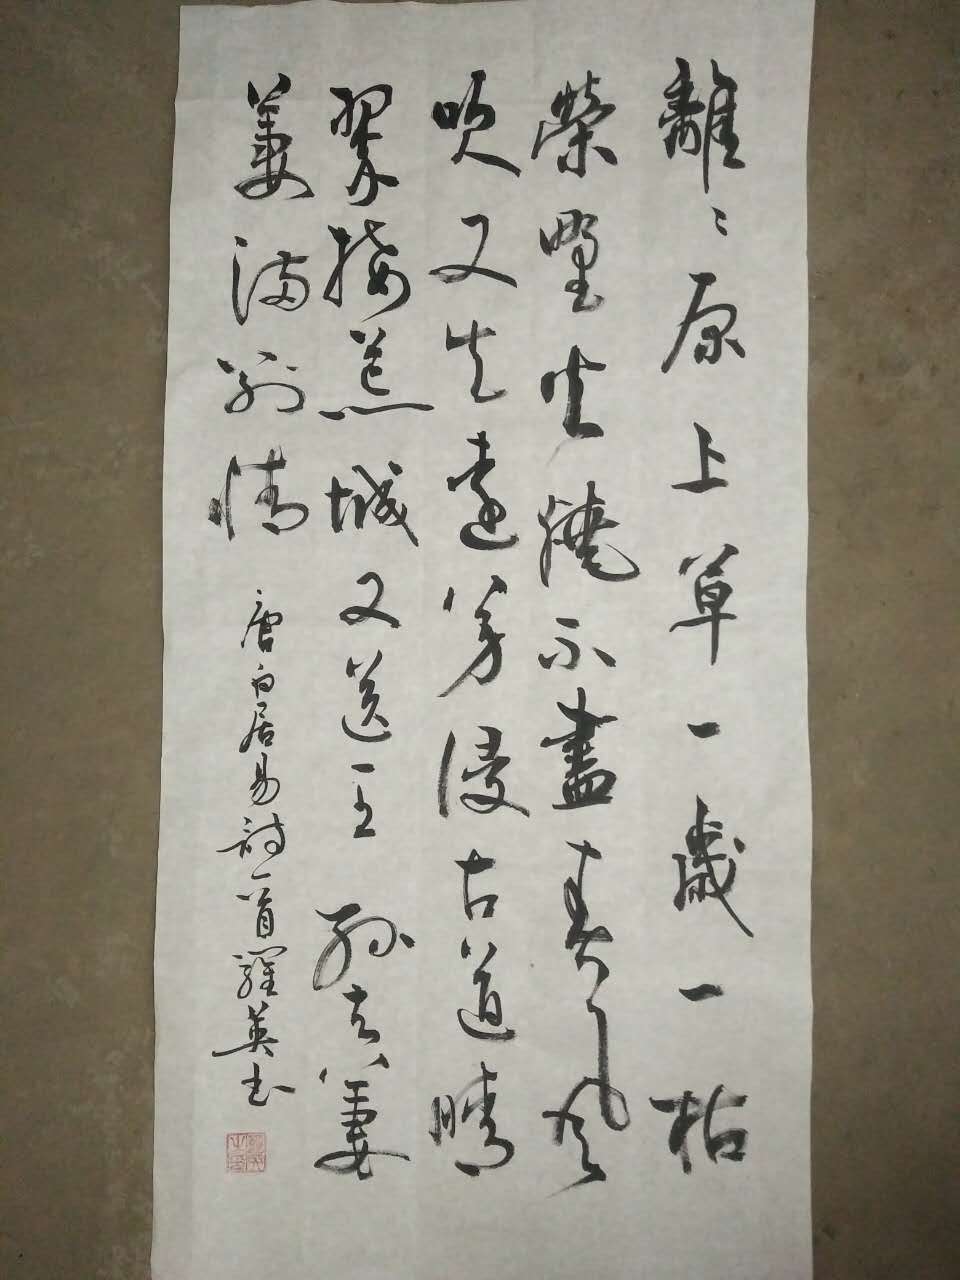 離〻原上草一歲一枯
榮野火燒不盡春風
吹又生遠芳侵古道晴
翠接荒城又送王孫去萋
萋滿別情
唐白居易詩一首羅英书